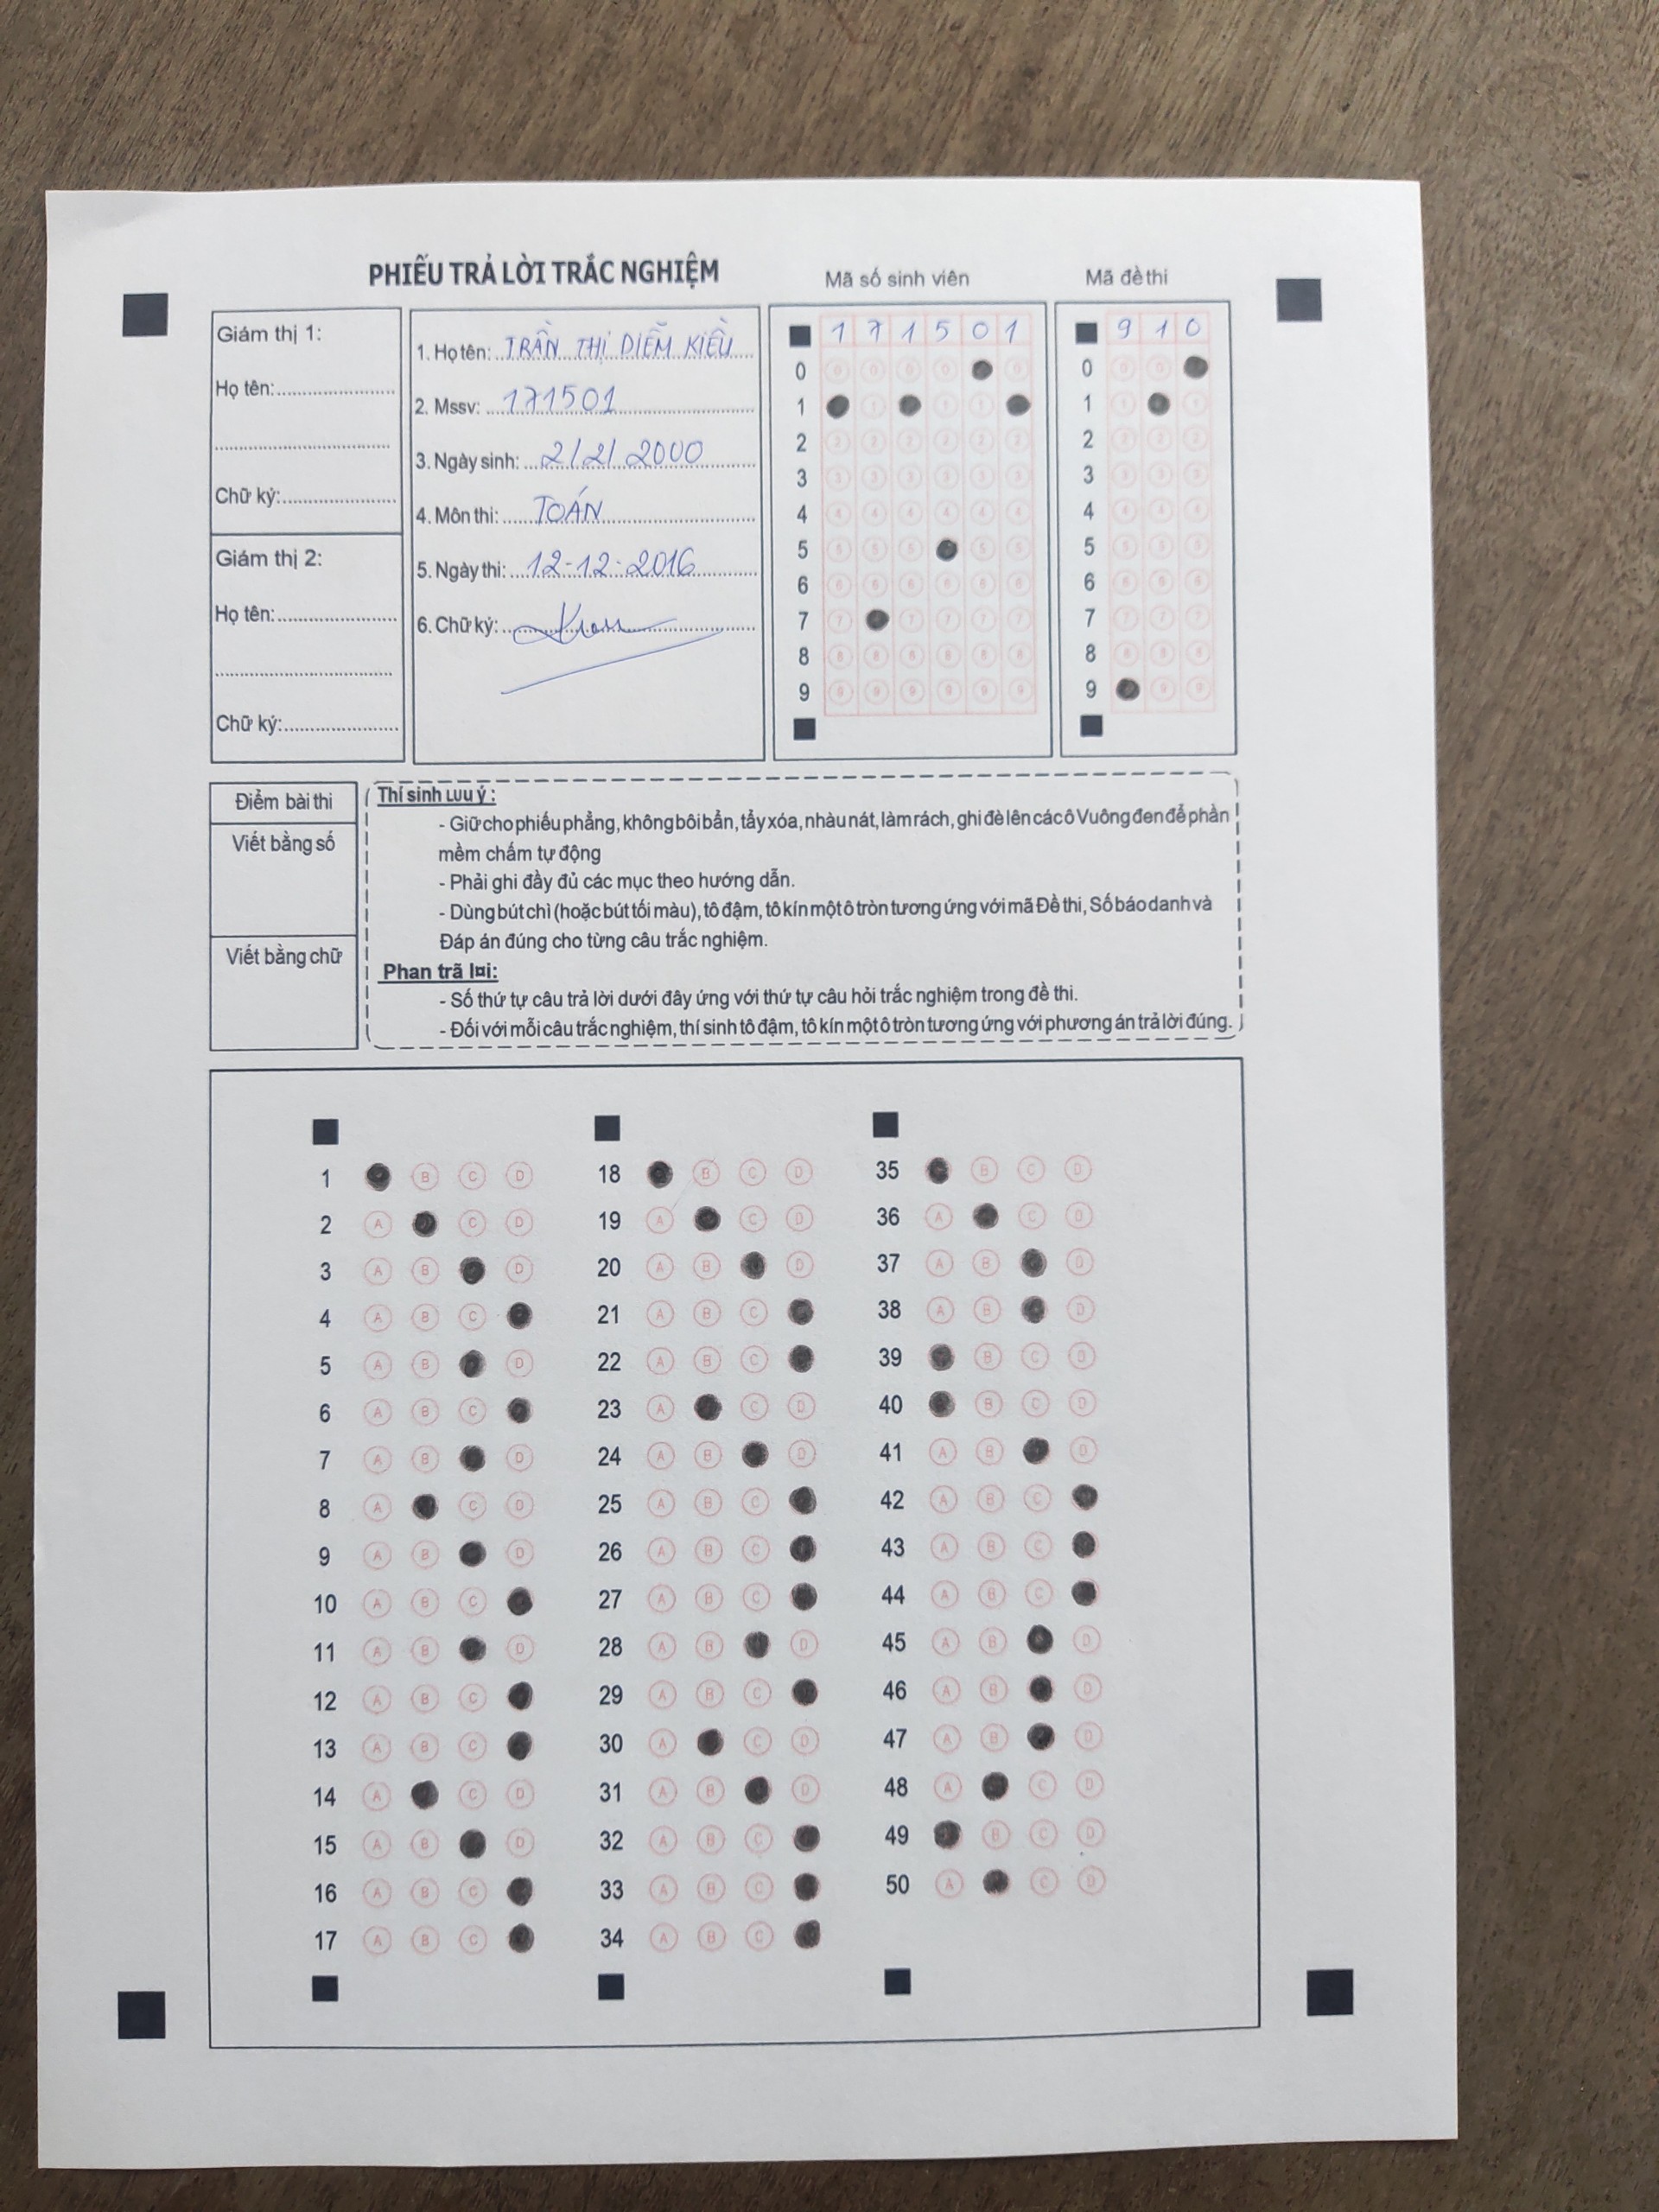 PHIẾU TRẢ LỜI TRẮC NGHIỆM
Mã số sinh viên
Mã đề thi
Giám thị 1:
Họ tên:
Chữ ký:
Giám thị 2:
Họ tên:
Chữ ký:
1. Họ tên: TRẦN THỊ DIỄM KIỀU
2. Mssv: 171501
3. Ngày sinh: 2/2/2000
4. Môn thi: TOÁN
5. Ngày thi: 12-12-2016
6. Chữ ký:
1 7 1 5 0 1
0 0 0 0 0 0
1 1 1 1
2 2 2 2 2 2 2
3 3 3 3 3 3 3
4 4 4 4 4 4 4
5 5 5 5 5 5
6 6 6 6 6 6 6
7 7 7 7 7 7
8 8 8 8 8 8 8
9 9 9 9 9 9 9
9 1 0
0 0 0
1 1 1
2 2 2 2
3 3 3 3
4 4 4 4
5 5 5 5
6 6 6 6
7 7 7 7
8 8 8 8
9 9 9
Điểm bài thi
Viết bằng số
Viết bằng chữ
Thí sinh Lưu ý :
- Giữ cho phiếu phẳng, không bôi bẩn, tẩy xóa, nhàu nát, làm rách, ghi đè lên các ô Vuông đen để phần
mềm chấm tự động
- Phải ghi đầy đủ các mục theo hướng dẫn.
- Dùng bút chì (hoặc bút tối màu), tô đậm, tô kín một ô tròn tương ứng với mã Đề thi, Số báo danh và
Đáp án đúng cho từng câu trắc nghiệm.
Phan trã l¤i:
- Số thứ tự câu trả lời dưới đây ứng với thứ tự câu hỏi trắc nghiệm trong đề thi.
- Đối với mỗi câu trắc nghiệm, thí sinh tô đậm, tô kín một ô tròn tương ứng với phương án trả lời đúng.
1 B C D
2 A C D
3 A B D
4 A B C
5 A B D
6 A B C
7 A B D
8 A C D
9 A B D
10 A B C
11 A B D
12 A B C
13 A B C
14 A C D
15 A B D
16 A B C
17 A B C
18 B C D
19 A C D
20 A B D
21 A B C
22 A B C
23 A C D
24 A B D
25 A B C
26 A B C
27 A B C
28 A B D
29 A B C
30 A C D
31 A B D
32 A B C
33 A B C
34 A B C
35 B C D
36 A C D
37 A B D
38 A B D
39 B C D
40 B C D
41 A B D
42 A B C
43 A B C
44 A B C
45 A B D
46 A B D
47 A B D
48 A C D
49 B C D
50 A C D